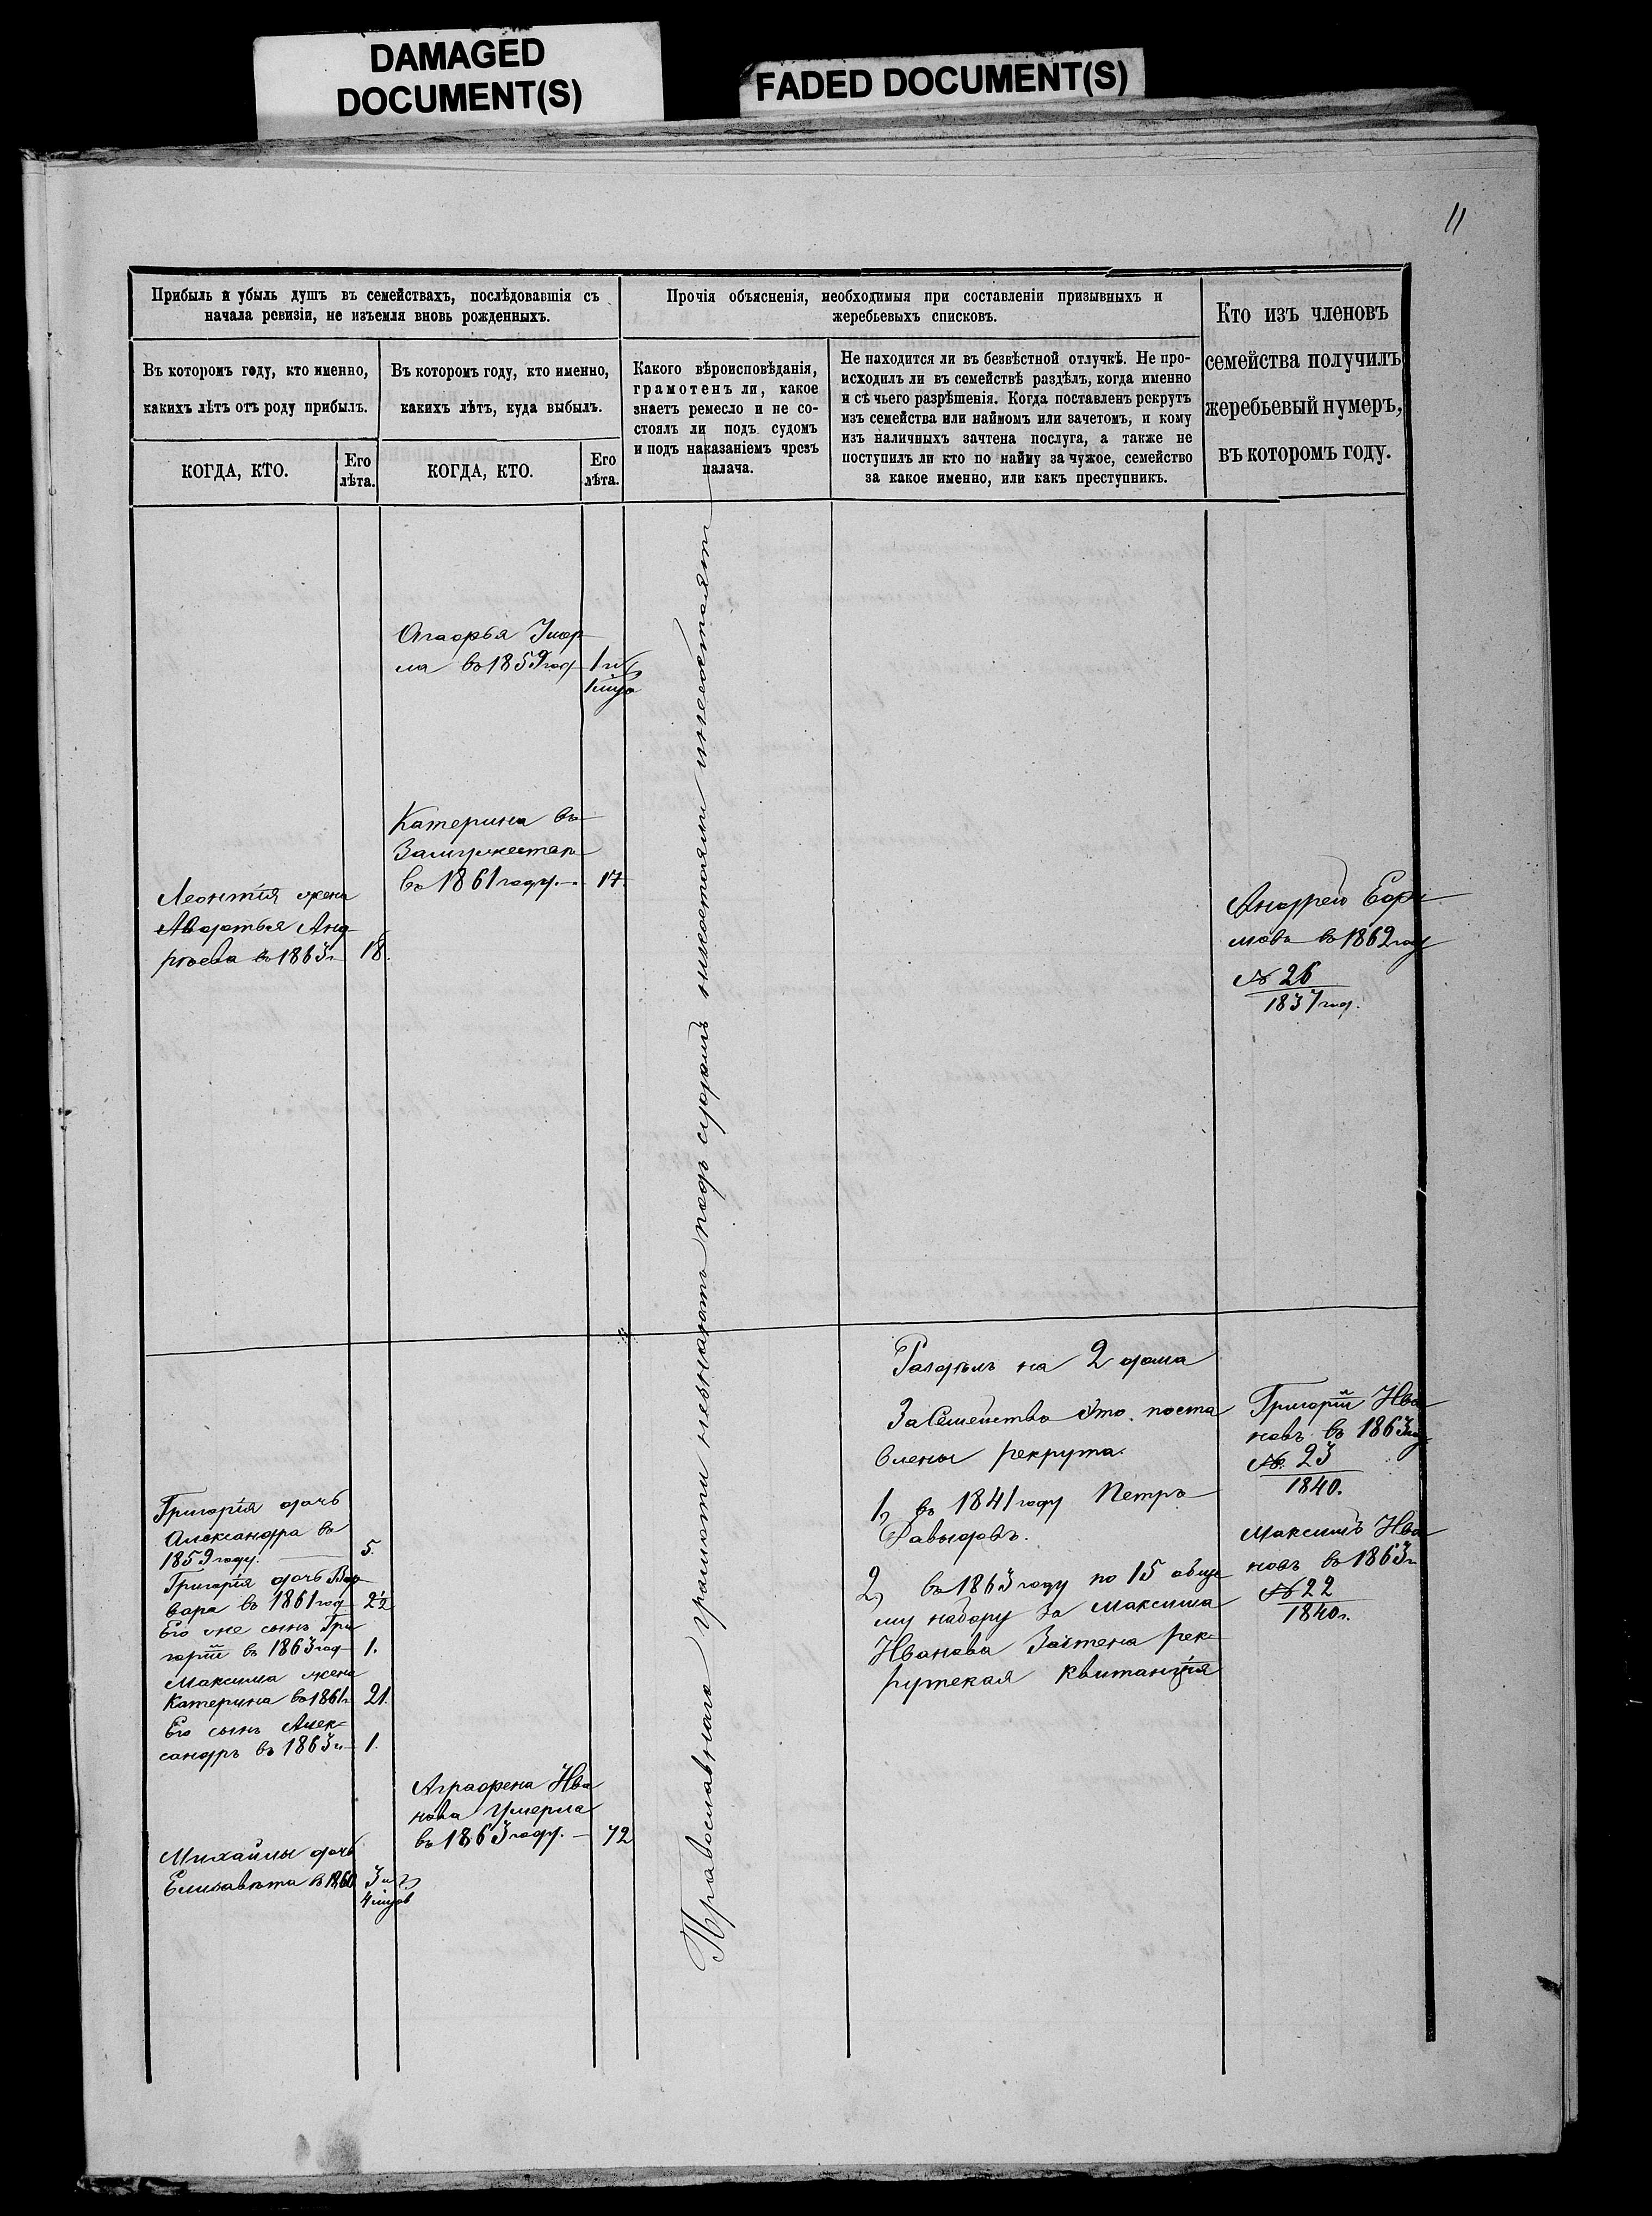 DAMAGED
DOCUMENT(S)
FADED DOCUMENT(S)
11
Прибыль и убыль душъ въ семействахъ, послѣдовавшія съ
начала ревизіи, не изъемля вновь рожденныхъ.
Прочія объясненія, необходимыя при составленіи призывныхъ и
жеребьевыхъ списковъ.
Кто изъ членовъ
семейства получилъ
жеребьевый нумеръ,
въ которомъ году.
Въ которомъ году, кто именно,
какихъ лѣтъ отъ роду прибылъ.
Въ которомъ году, кто именно,
какихъ лѣтъ, куда выбылъ.
Какого вѣроисповѣданія,
грамотенъ ли, какое
знаетъ ремесло и не со-
стоялъ ли подъ судомъ
и подъ наказаніемъ чрезъ
палача.
Не находится ли въ безвѣстной отлучкѣ. Не про-
исходилъ ли въ семействѣ раздѣлъ, когда именно
и сѣ чьего разрѣшенія. Когда поставленъ рекрутъ
изъ семейства или наймомъ или зачетомъ, и кому
изъ наличныхъ зачтена послуга, а также не
поступилъ ли кто по найму за чужое, семейство
за какое именно, или какъ преступникъ.
КОГДА, КТО.
Его
лѣта.
КОГДА, КТО.
Его
лѣта.
Агафья Умер
ла въ 1859 год
1 и
1 мѣс
Катерина въ
Замужество
въ 1861 году. 17.
Леонтія жена
Авдотья Анд
рѣева въ 1863 г 18.
Андрей Ефи
мовъ въ 1862 году
№ 26
1837 год.
Православнаго грамоти незнаютъ подъ судомъ несостояли инесостоятъ
Раздѣлъ на 2 дома
За Семейство Это поста
влены рекрута.
1, въ 1841 году Петръ
Давыдовъ.
2, въ 1863 году по 15 обще
му набору За Максима
Иванова Зачтена рек-
рутская квитанція
Григорій Ива
новъ въ 1863 году
№ 23
1840.
Максимъ Ива
новъ въ 1863 г
№ 22
1840 г.
Григорія дочь
Александра въ
1859 году. 5.
Григорія дочь Вар
вара въ 1861 год 2½
Его же сынъ Гри
горій въ 1863 год 1.
Максима жена
Катерина въ 1861 г 21.
Его сынъ Алек-
сандръ въ 1863 г 1.
Аграфена Ива
нова Умерла
въ 1863 году. 72
Михайлы дочь
Елизавѣта в 1860 3 и
4 мѣсяцов